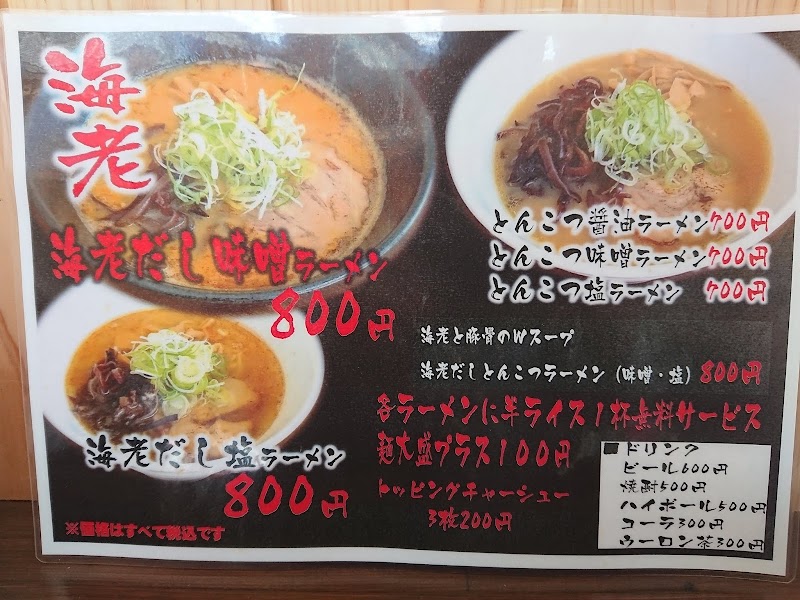 海老
海老だし味噌ラーメン
800円
海老だし塩ラーメン
800円
※価格はすべて税込です
とんこつ醤油ラーメン700円
とんこつ味噌ラーメン700円
とんこつ塩ラーメン 700円
海老と豚骨のWスープ
海老だしとんこつラーメン(味噌・塩)800円
各ラーメンに半ライス1杯無料サービス
麺大盛プラス100円
トッピングチャーシュー
3枚200円
■ドリンク
ビール600円
焼酎500円
ハイボール500円
コーラ300円
ウーロン茶300円